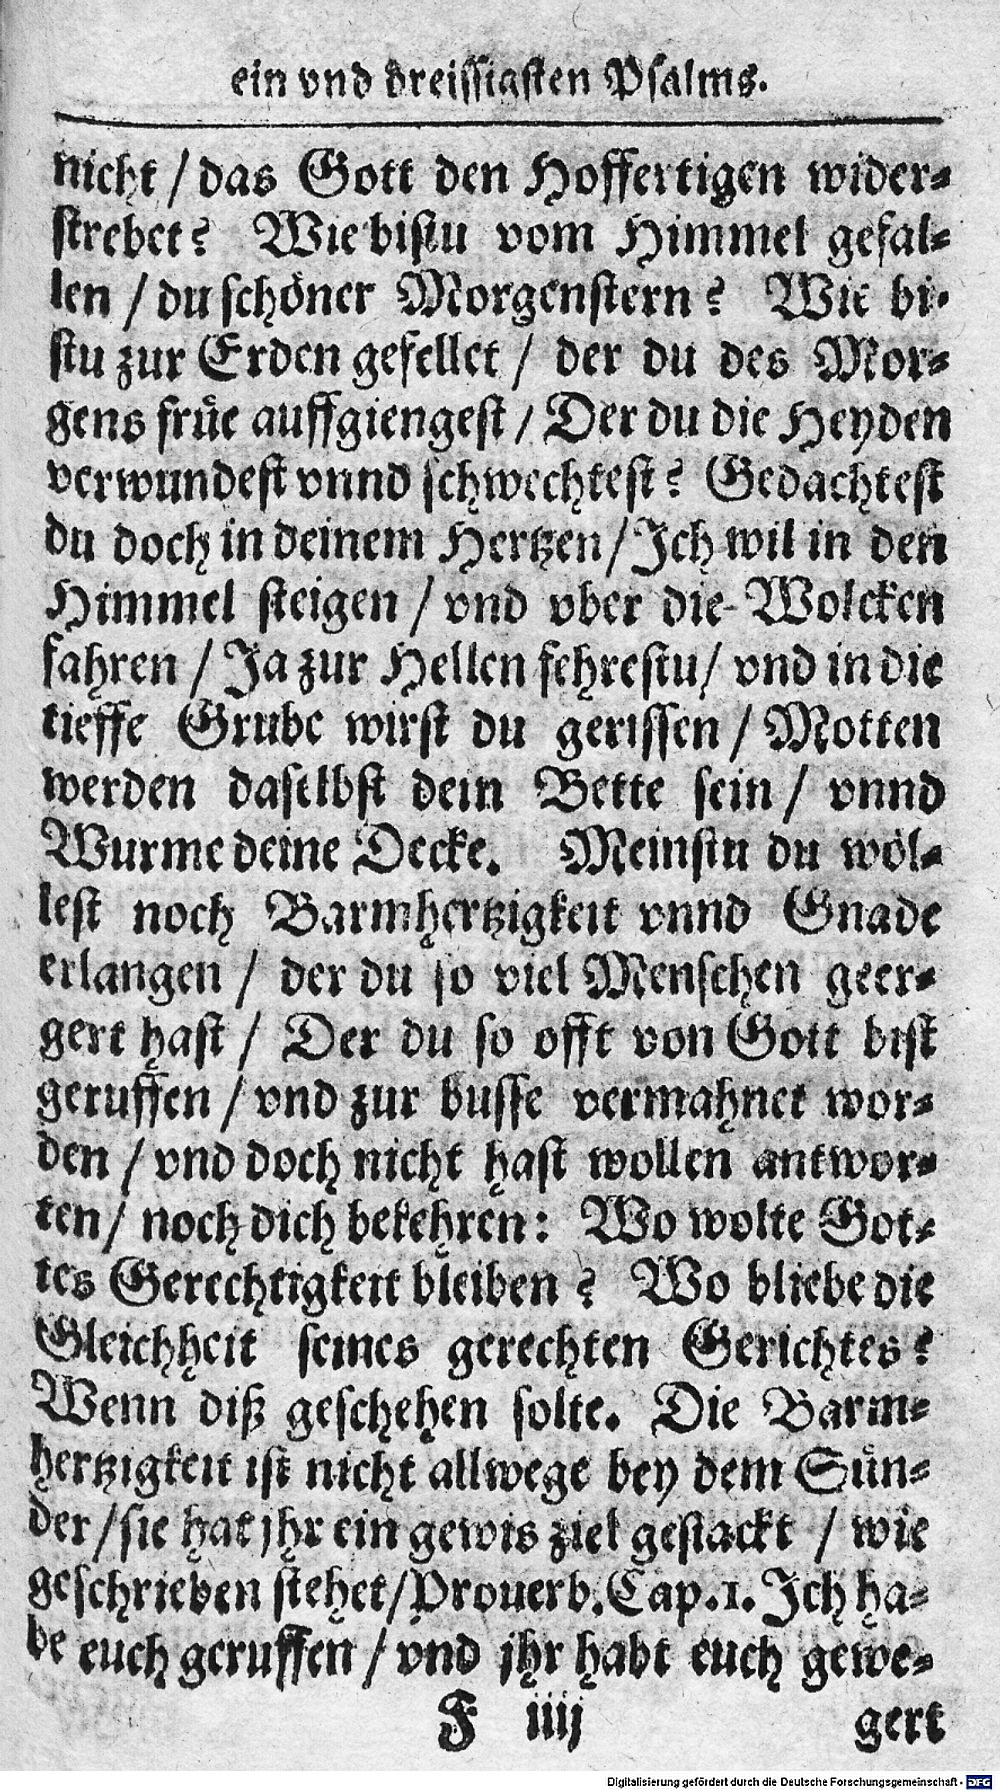 ein vnd dreissigsten Psalms.
nicht / das Gott den Hoffertigen wider⸗
strebet? Wie bistu vom Himmel gefal⸗
len / du schöner Morgenstern? Wie bi⸗
stu zur Erden gefellet / der du des Mor⸗
gens früe auffgiengest / Der du die Heyden
verwundest vnnd schwechtest? Gedachtest
du doch in deinem Hertzen / Ich wil in den
Himmel steigen / vnd vber die Wolcken
fahren / Ja zur Hellen fehrestu / vnd in die
tieffe Grube wirst du gerissen / Motten
werden daselbst dein Bette sein / vnnd
Wurme deine Decke. Meinstu du wöl⸗
lest noch Barmhertzigkeit vnnd Gnade
erlangen / der du so viel Menschen geer⸗
gert hast / Der du so offt von Gott bist
geruffen / vnd zur busse vermahnet wor⸗
den / vnd doch nicht hast wollen antwor⸗
ten / noch dich bekehren: Wo wolte Got⸗
tes Gerechtigkeit bleiben? Wo bliebe die
Gleichheit seines gerechten Gerichtes?
Wenn diß geschehen solte. Die Barm⸗
hertzigkeit ist nicht allwege bey dem Sün⸗
der / sie hat jhr ein gewis ziel gestackt / wie
geschrieben stehet / Prouerb. Cap. 1. Ich ha⸗
be euch geruffen / vnd jhr habt euch gewe⸗
F iiij gert
Digitalisierung gefördert durch die Deutsche Forschungsgemeinschaft - DFG